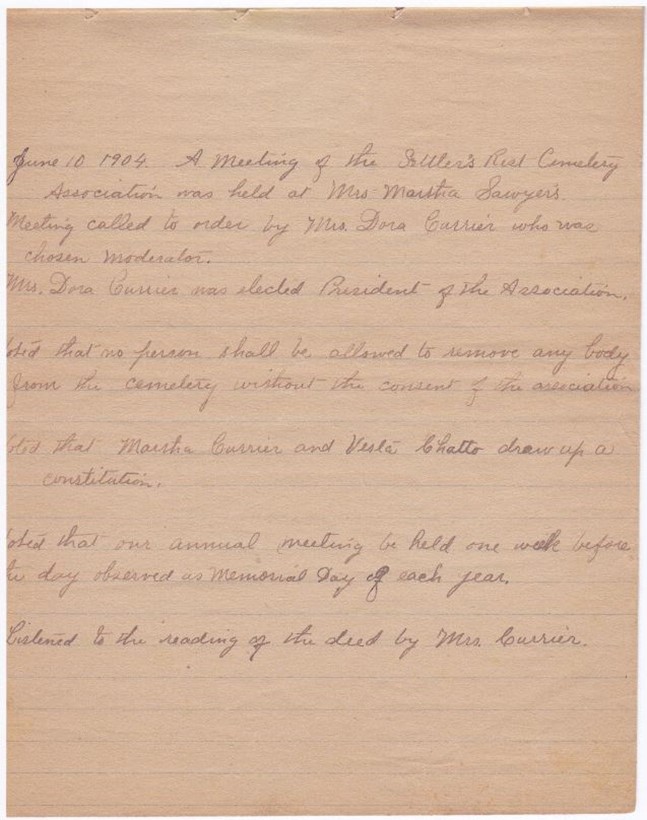 June 10 1904. A Meeting of the Settler's Rest Cemetery
Association was held at Mrs Martha Sawyer's.
Meeting called to order by Mrs. Dora Currier who was
chosen moderator.
Mrs. Dora Currier was elected President of the Association.
oted that no person shall be allowed to remove any body
from the cemetery without the consent of the association
oted that Martha Currier and Vesta Chatto draw up a
constitution.
oted that our annual meeting be held one week before
the day observed as Memorial Day of each year.
Listened to the reading of the deed by Mrs. Currier.